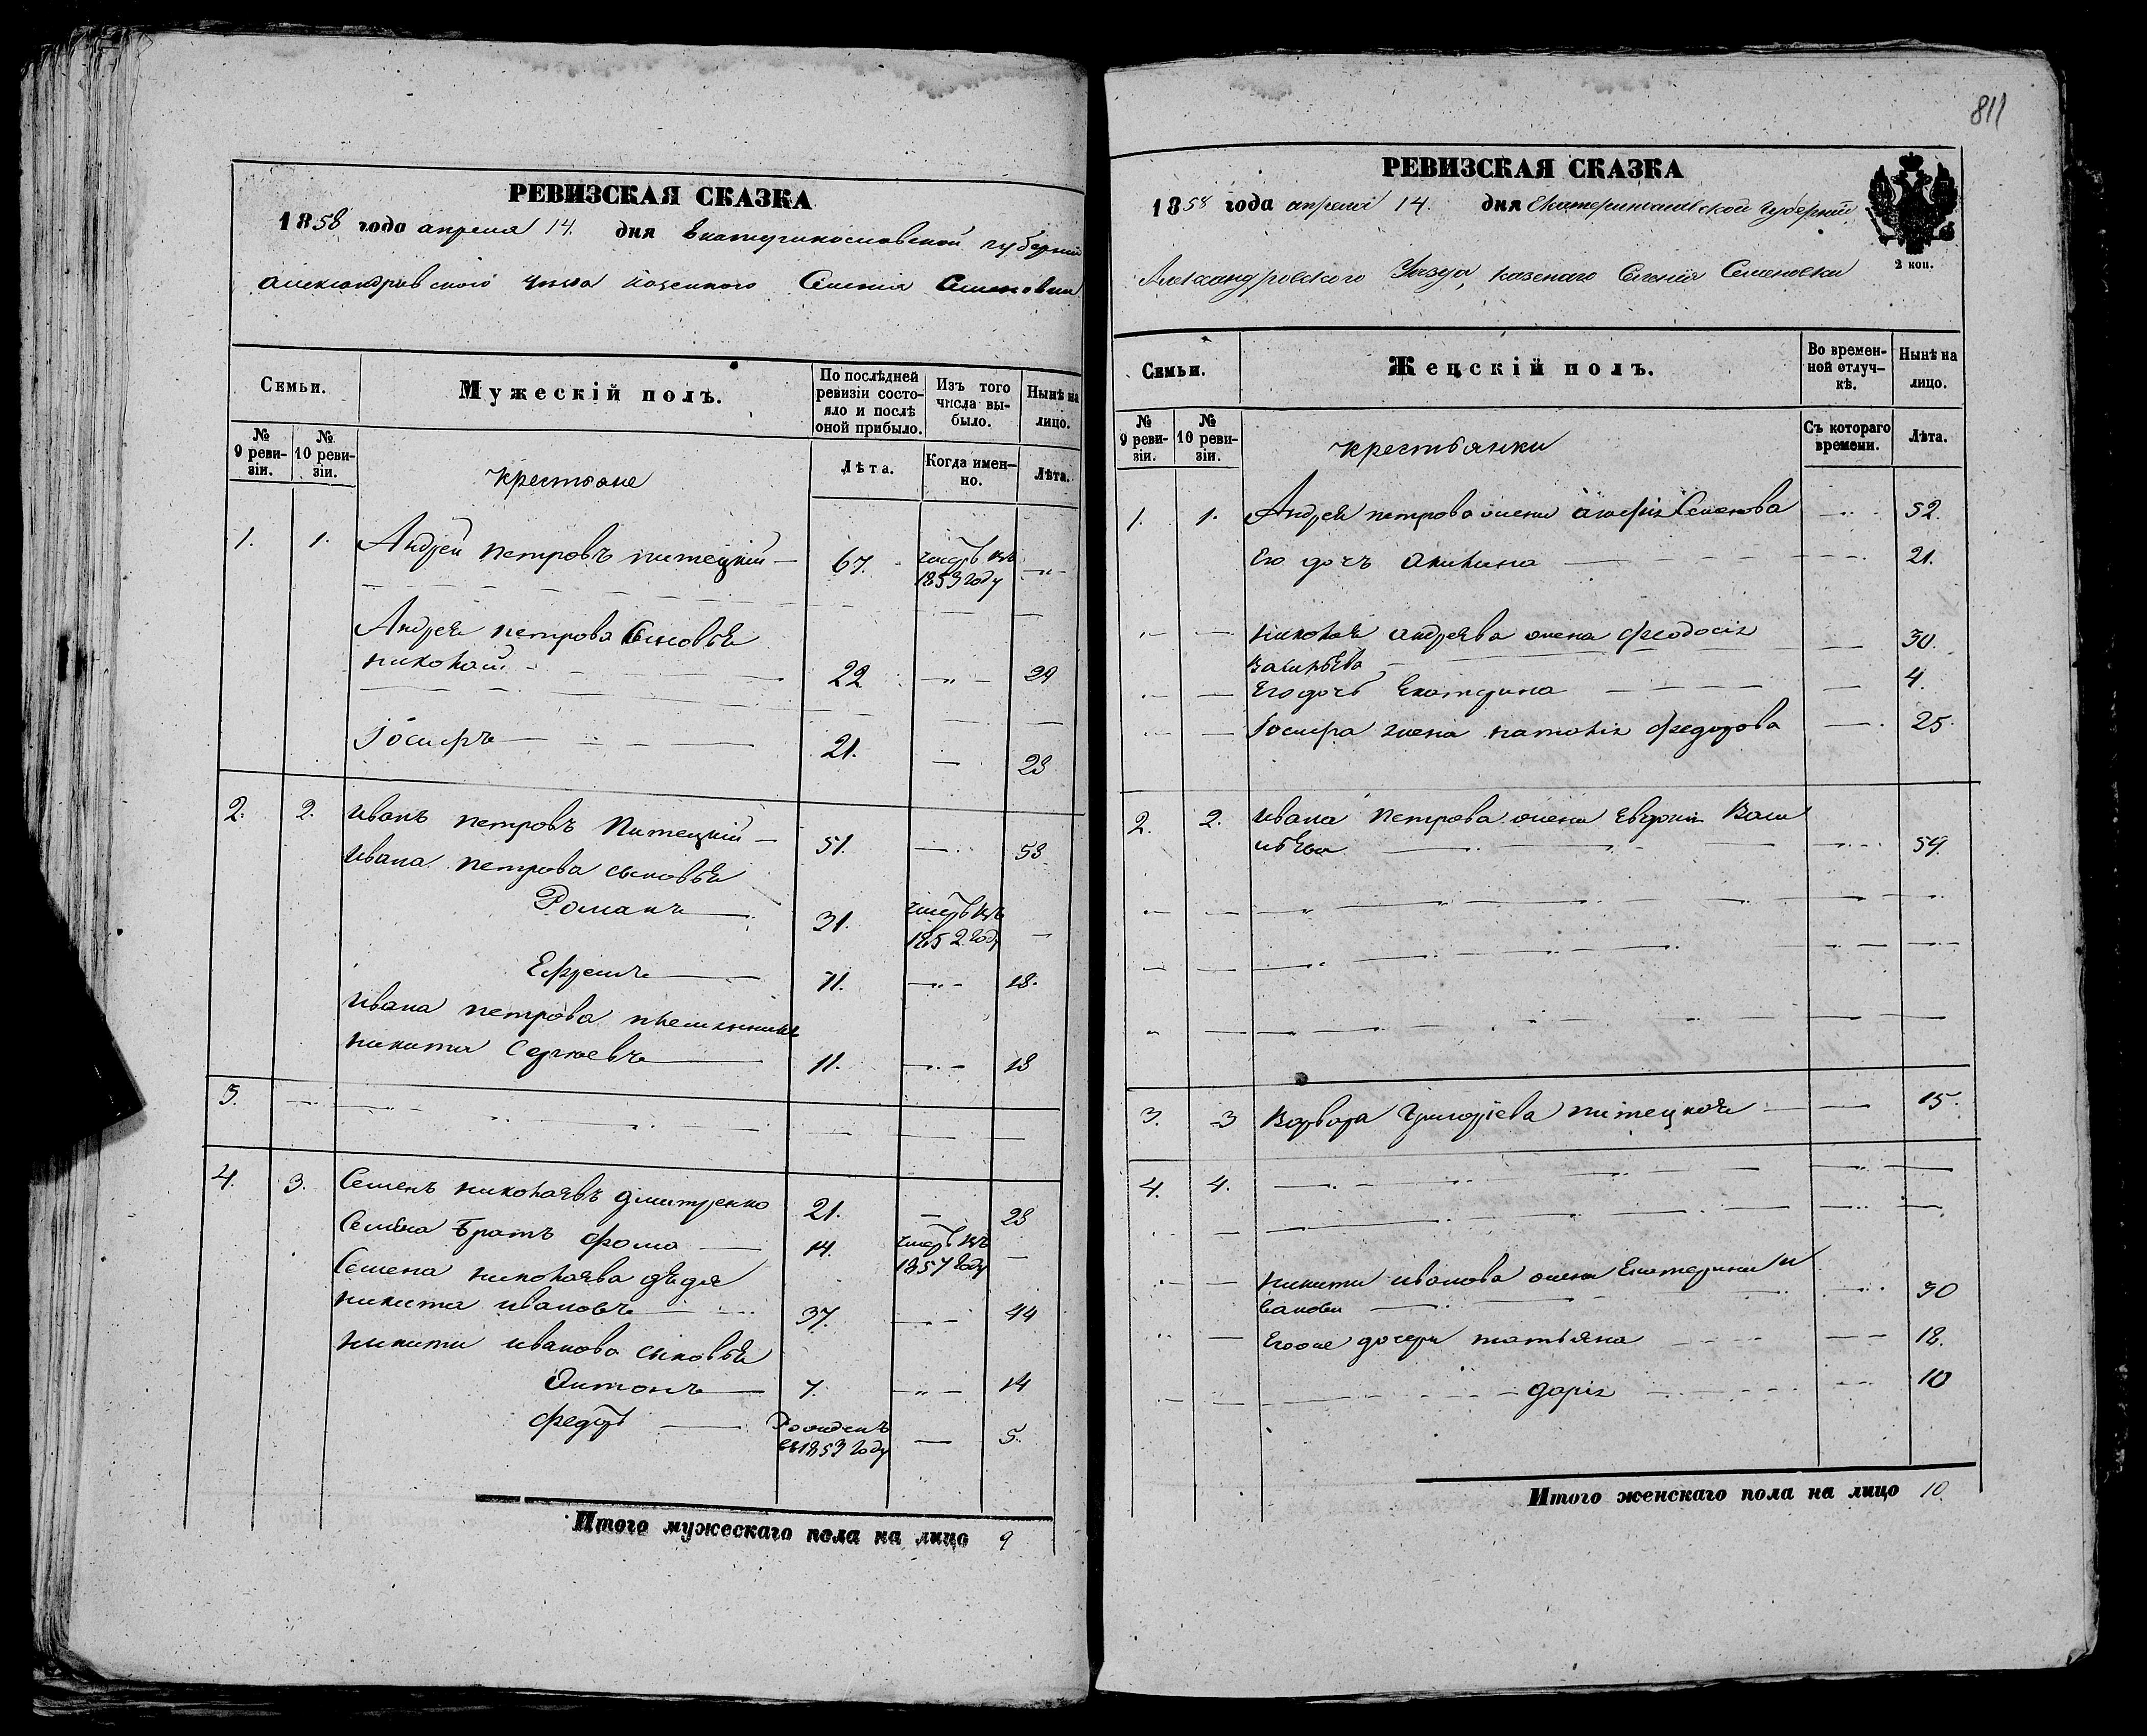 811
РЕВИЗСКАЯ СКАЗКА
1858 года апреля 14. дня Екатеринославской губерніи
Александровского Уезда казенного Селенія Семеновки
Семьи.
Мужескій полъ.
По послѣдней ревизіи состояло и послѣ оной прибыло.
Изъ того числа выбыло.
Нынѣ на лицо.
№ 9 ревизіи.
№ 10 ревизіи.
крестьяне
Лѣта.
Когда именно.
Лѣта.
1. 1. Андрей петровъ питецкій 67. умеръ въ 1853 году
Андрея петрова сыновья
николай 22 29
Іосифъ 21. 28
2. 2. иванъ петровъ Питецкій 51. 58
ивана петрова сыновья
Романъ 31. умеръ въ 1852 году
Ефремъ 11. 18.
ивана петрова племянникъ
никита Сергеевъ 11. 18
3.
4. 3. Семенъ николаевъ дмитренко 21. 28
Семена братъ фома 14. умеръ въ 1857 году
Семена николаева дядя
никита ивановъ 37. 44
никиты иванова сыновья
Антонъ 7. 14
федоръ Рожденъ въ 1853 году 5.
Итого мужескаго пола на лицо 9
РЕВИЗСКАЯ СКАЗКА
1858 года апреля 14. дня Екатеринославской губерніи
Александровского Уезда, казенаго Селенія Семеновки
2 коп.
Семьи.
Женскій полъ.
Во временной отлучкѣ.
Нынѣ на лицо.
№ 9 ревизіи.
№ 10 ревизіи.
крестьянки
Съ котораго времени.
Лѣта.
1. 1. Андрея петрова жена Семенова 52.
Его дочь Акилина 21.
николая андреева жена феодосія 30.
Васильева
Его дочь Екатерина 4.
Іосифа жена наталія федорова 25.
2. 2. ивана Петрова жена Евфимія Васи
льева 59.
3. 3 Варвара Григоріева питецкая 15.
4. 4.
никиты иванова жена Екатерина и
ванова 30
Егоже дочери татьяна 18.
дарія 10
Итого женскаго пола на лицо 10.